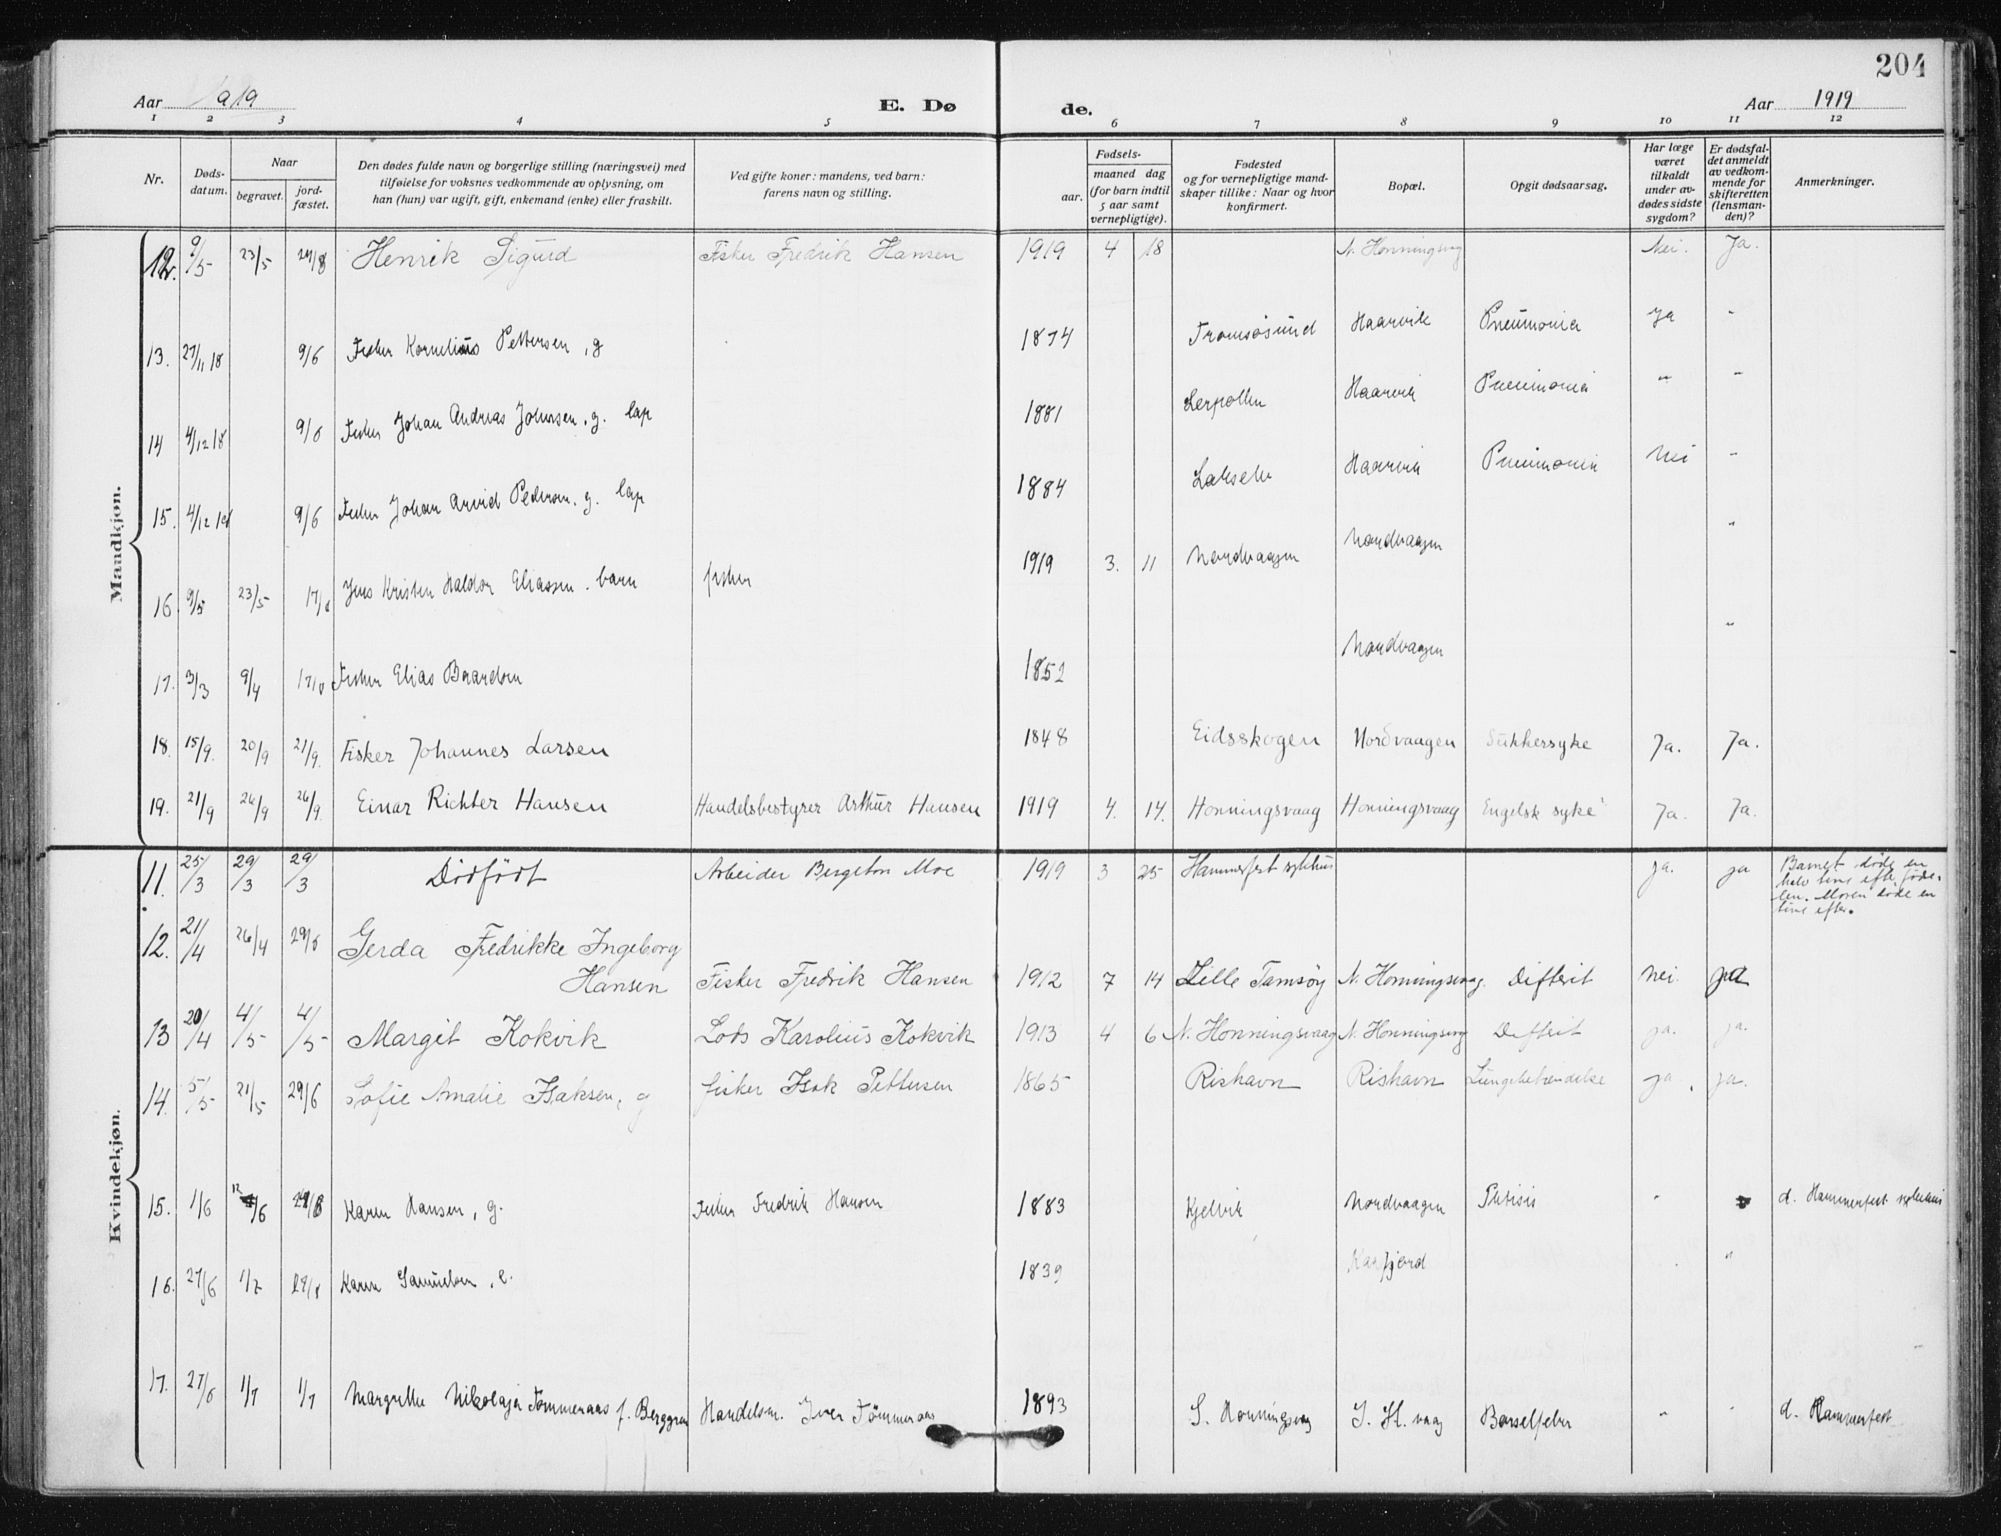 204
Aar 1919 E. Dø de. Aar 1919
1 2 3 4 5 6 7 8 9 10 11 12
Nr. Døds-datum. Naar begravet. jord-fæstet. Den dødes fulde navn og borgerlige stilling (næringsvei) med tilføielse for voksnes vedkommende av oplysning, om han (hun) var ugift, gift, enkemand (enke) eller fraskilt. Ved gifte koner: mandens, ved barn: farens navn og stilling. Fødsels- aar. maaned dag (for barn indtil 5 aar samt vernepligtige). Fødested og for vernepligtige mand-skaper tillike: Naar og hvor konfirmert. Bopæl. Opgit dødsaarsag. Har læge været tilkaldt under av-dødes sidste sygdom? Er dødsfal-det anmeldt av vedkom-mende for skifteretten (lensman-den)? Anmerkninger.
Mandkjøn.
12. 9/5 23/5 29/8 Henrik Sigurd Fisker Fredrik Hansen 1919 4 18 N. Honningsvag Nei. Ja.
13. 27/11 18 9/6 Fisker Kornelius Pettersen, g 1874 Tromsøsund Haarvik Pneumonia Ja "
14 4/12 18 9/6 Fisker Johan Andreas Johnsen, g. lap 1881 Lerpollen Haarvik Pneumonia " "
15. 4/12 18 9/6 Fisker Johan Arvid Pedersen. g. lap 1884 Lakselv Haarvik Pneumonia Nei "
16 9/5 23/5 17/8 Jens Kristen Haldor Eliassen. barn fisker 1919 3. 11 Nordvaagen Nordvaagen "
17. 3/3 9/4 17/8 Fisker Elias Baardsen 1852 Nordvaagen "
18. 15/9. 20/9 21/9. Fisker Johannes Larsen 1848 Eidsskogen Nordvaagen Sukkersyke Ja. Ja.
19. 21/9 26/9 26/9. Einar Richter Hansen Handelsbestyrer Arthur Hansen 1919 4. 14. Honningsvaag Honningsvaag Engelsk syke Ja. Ja.
Kvindekjøn.
11. 25/3 29/3 29/3 Dödfödt Arbeider Bergeton Moe 1919 3 25 Hammerfest sykhus ja. ja Barnet döde en
halv time efter föde-
len. Moren döde en
time efter.
12. 21/4 26/4 29/6 Gerda Fredrikke Ingeborg
Hansen Fisker Fredrik Hansen 1912 7 14 Lille Tamsøy N. Honningsvaag. Difterit Nei. ja
13 20/4 4/5 4/5 Margit Kokvik Lods Karolius Kokvik 1913 4 6 N. Honningsvaag N. Honningsvag Difterit ja. ja.
14. 5/5 21/5 29/6 Sofie Amalie Isaksen, g fisker Isak Pettersen 1865 Rishavn Rishavn Lungebetændelse ja. ja.
15. 1/6 12/6 29/6 Karen Hansen, g. Fisker Fredrik Hansen 1883 Kjelvik Nordvaagen Phtisis " d. Hammerfest sykehus
16. 27/6 1/7 29/8 Karen Samuelsen, e. 1839 Kafjord "
17. 27/6 1/7 1/7 Margrethe Nikolaja Tømmeraas f. Berggren Handelsm. Iver Tømmeraas 1893 S. Honningsvag S. H. vaag Barselfeber " " d. Hammerfest